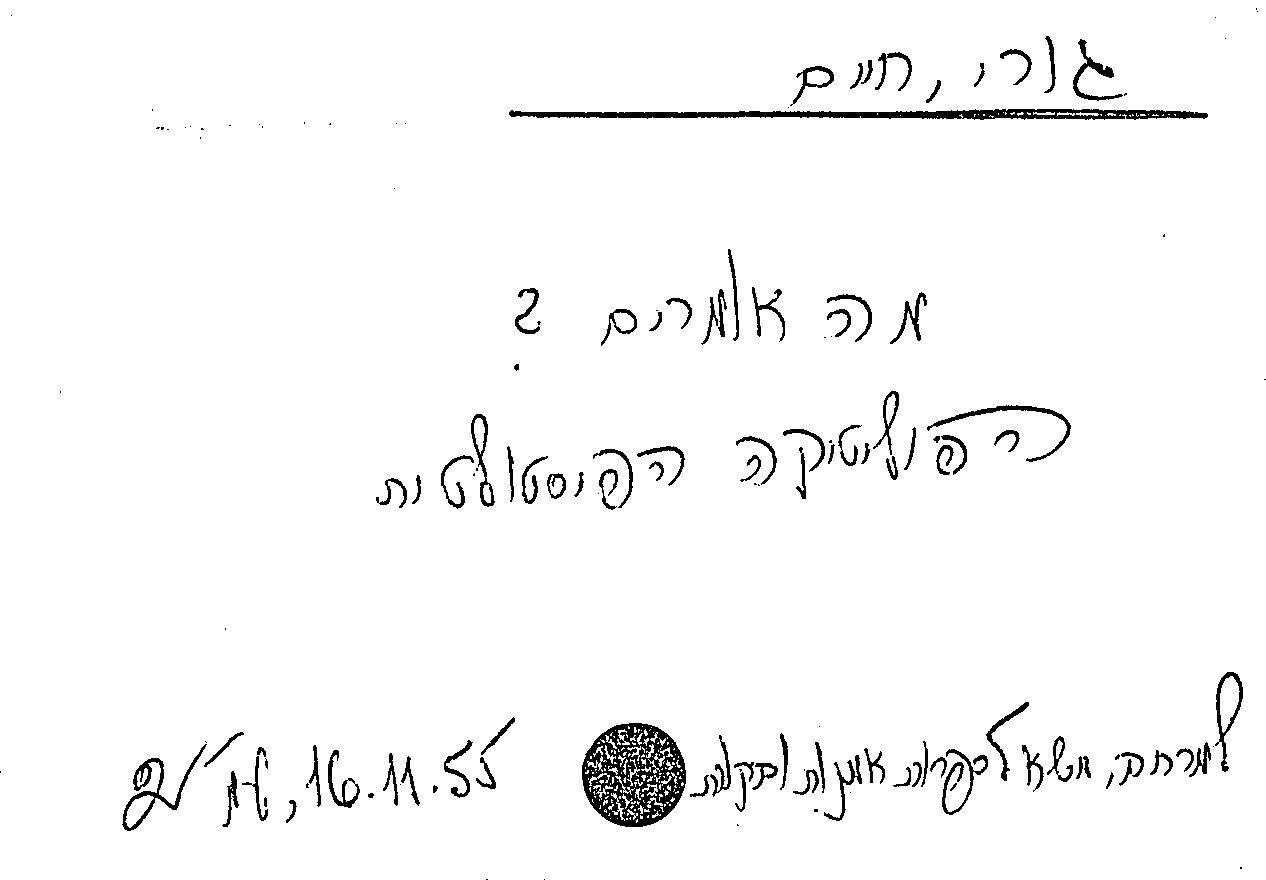 גורי, חיים
מה אומרים ?
הפוליטיקה הפיסטולטית
למרחב, משא לספרות אמנות ובקורת 16.11.55,